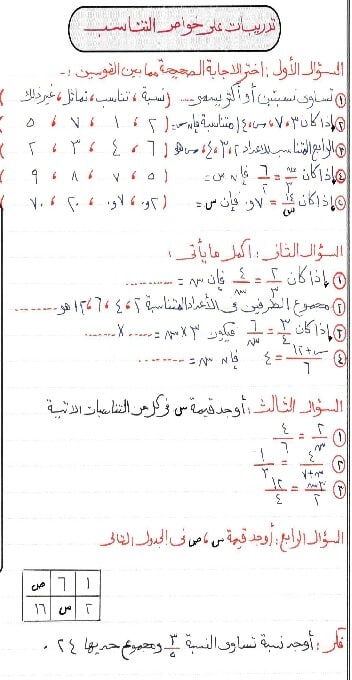 تدريبات على خواص التناسب
السؤال الأول : اختر الاجابة الصحيحة مما بين القوسين :-
① تساوى نسبتين أو أكثر يسمى ... ( نسبة ، تناسب ، تماثل ، غير ذلك )
② إذا كان ٣ ، ٧ ، س ، ٤ متناسبة فإن س = ( ٢ ، ١ ، ٧ ، ٥
③ الرابع المتناسب للأعداد ٢ ، ٣ ، ٤ ، س هو ( ٦ ، ٤ ، ٣ ، ٢
④ إذا كان س/٣ = ٦/٢ فإن س = ( ٥ ، ٧ ، ٨ ، ٩
⑤ ١٤/س = ٧و. فإن س = ( ٢و. ، ٧و. ، ٢٠ ، ٧٠
السؤال الثانى : أكمل ما يأتى :
① إذا كان ٢/٣ = ٤/س فإن س = ..........
② مجموع الطرفين فى الأعداد المتناسبة ٢ ، ٤ ، ٦ ، ١٢ هو ........
③ إذا كان ٣/٤ = ٦/س فيكون ٣ × س = ...... × ......
④ س+١٢/٦ = ٤ فإن س = ..........
السؤال الثالث : أوجد قيمة س فى كل من التناسبات الآتية
① ٢/س = ٤/٦
② ٤/س+٧ = ١/٣
③ ٣س/٢ = ١٢/٤
السؤال الرابع : أوجد قيمة س ، ص فى الجدول التالى
١ ٦ ص
٢ س ١٦
فكر : أوجد نسبة تساوى النسبة ٣/٥ ومجموع حديها ٢٤ .